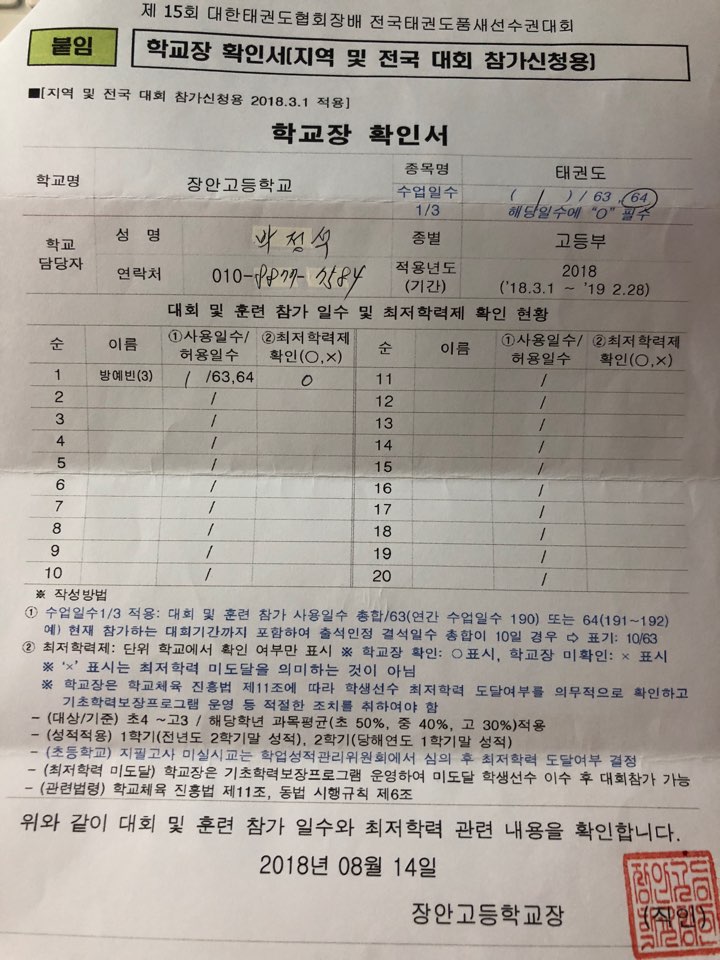 제 15회 대한태권도협회장배 전국태권도품새선수권대회
붙임 학교장 확인서(지역 및 전국 대회 참가신청용)
■[지역 및 전국 대회 참가신청용 2018.3.1 적용]
학교장 확인서
학교명 장안고등학교 종목명 태권도
수업일수 1/3 ( / ) / 63 , 64
해당일수에 "O" 필수
학교 담당자 성 명 박정석 종별 고등부
연락처 010-8877-7584 적용년도 (기간) 2018 ('18.3.1 ~ '19 2.28)
대회 및 훈련 참가 일수 및 최저학력제 확인 현황
순 이름 ①사용일수/허용일수 ②최저학력제 확인(○,×) 순 이름 ①사용일수/허용일수 ②최저학력제 확인(○,×)
1 방예빈(3) / /63,64 O 11 /
2 / 12 /
3 / 13 /
4 / 14 /
5 / 15 /
6 / 16 /
7 / 17 /
8 / 18 /
9 / 19 /
10 / 20 /
※ 작성방법
① 수업일수1/3 적용: 대회 및 훈련 참가 사용일수 총합/63(연간 수업일수 190) 또는 64(191~192)
예) 현재 참가하는 대회기간까지 포함하여 출석인정 결석일수 총합이 10일 경우 ⇨ 표기: 10/63
② 최저학력제: 단위 학교에서 확인 여부만 표시 ※ 학교장 확인: ○표시, 학교장 미확인: × 표시
※ '×' 표시는 최저학력 미도달을 의미하는 것이 아님
※ 학교장은 학교체육 진흥법 제11조에 따라 학생선수 최저학력 도달여부를 의무적으로 확인하고
기초학력보장프로그램 운영 등 적절한 조치를 취하여야 함
- (대상/기준) 초4 ~고3 / 해당학년 과목평균(초 50%, 중 40%, 고 30%)적용
- (성적적용) 1학기(전년도 2학기말 성적), 2학기(당해연도 1학기말 성적)
- (초등학교) 지필고사 미실시교는 학업성적관리위원회에서 심의 후 최저학력 도달여부 결정
- (최저학력 미도달) 학교장은 기초학력보장프로그램 운영하여 미도달 학생선수 이수 후 대회참가 가능
- (관련법령) 학교체육 진흥법 제11조, 동법 시행규칙 제6조
위와 같이 대회 및 훈련 참가 일수와 최저학력 관련 내용을 확인합니다.
2018년 08월 14일
장안고등학교장 (직인)